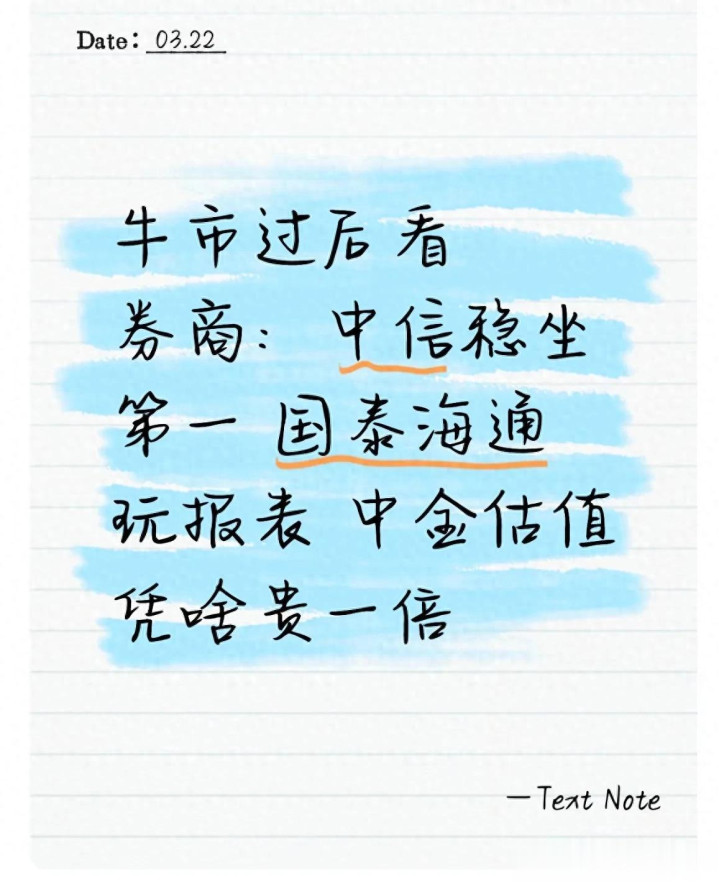 Date: 03.22
牛市过后看
券商： 中信稳坐
第一 国泰海通
玩报表 中金估值
凭啥贵一倍
—Text Note